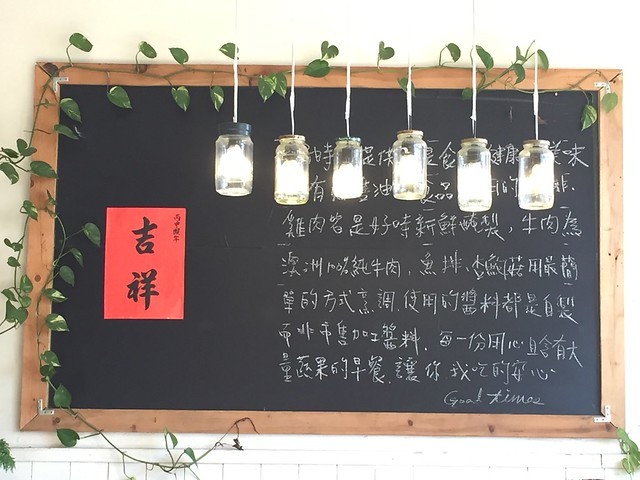 吉祥
時 提供 食 健康 美味
有 售 油 食品 用的 排
雞肉皆是好時新鮮醃製,牛肉為
澳洲100%純牛肉,魚排、杏鮑菇用最簡
單的方式烹調,使用的醬料都是自製
而非市售加工醬料,每一份用心且含有大
量蔬果的早餐,讓你我吃的安心
Good times